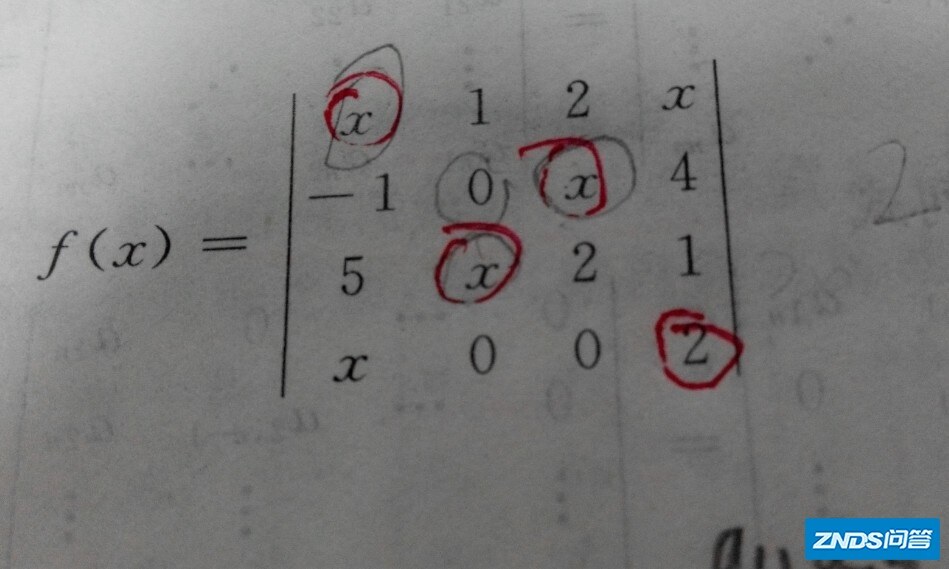 x 1 2 x
− 1 0 x 4
f(x) =
5 x 2 1
x 0 0 2
2
ZNDS问答